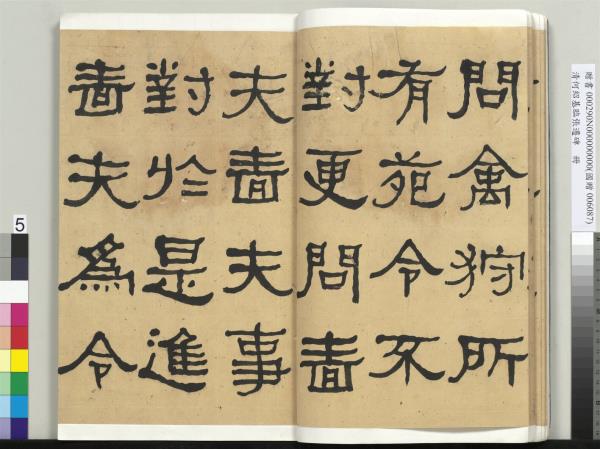 問禽狩所
有苑令不
對更問嗇
夫嗇夫事
對於是進
嗇夫爲令
贈書 000290N000000000(國贈 006087)
清何紹基臨張遷碑 冊
5